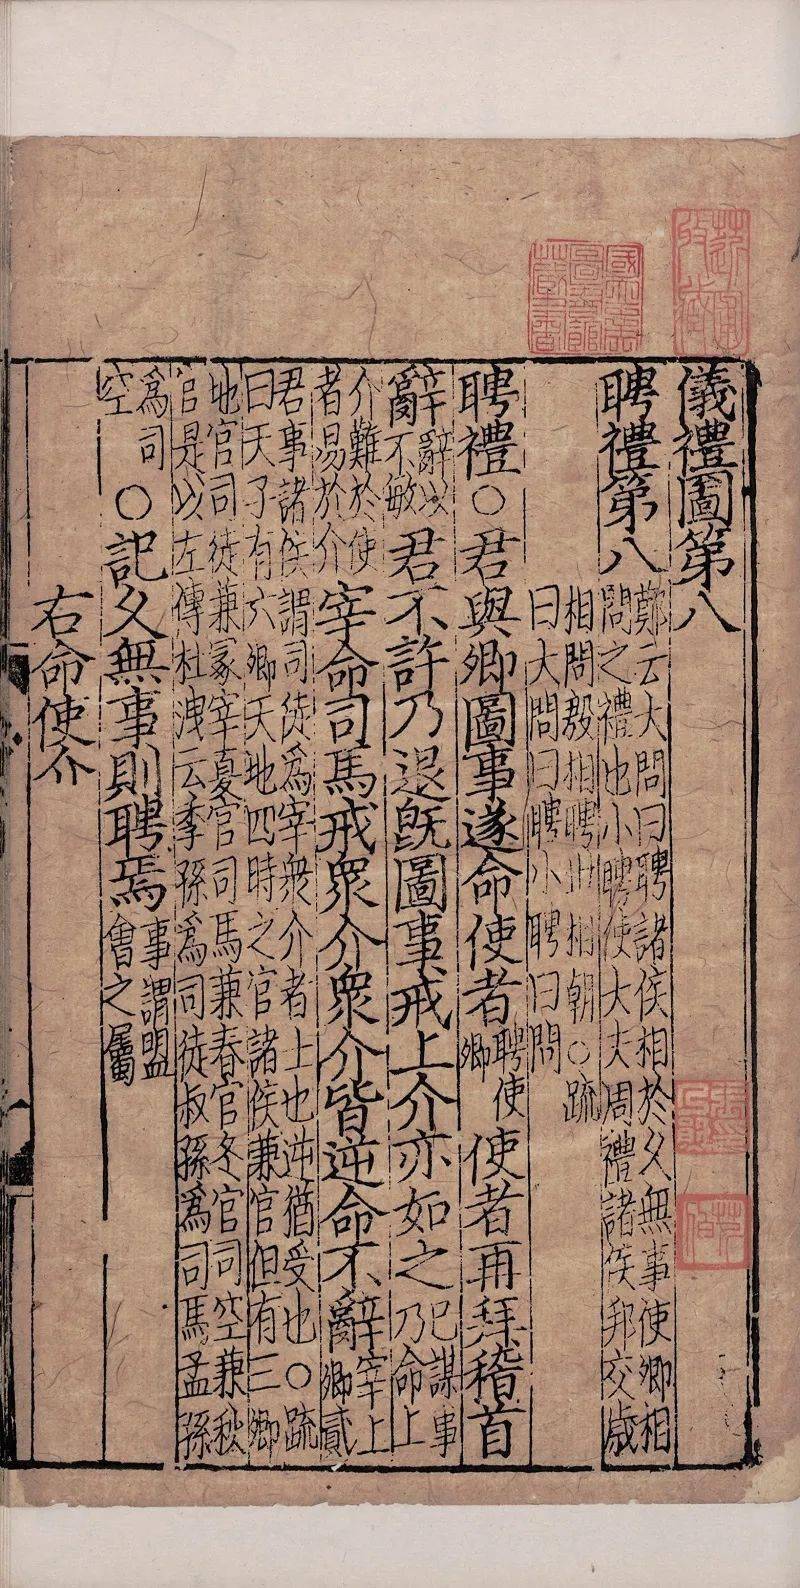 儀禮圖第八
聘禮第八
鄭云大問曰聘諸侯相於久無事使卿相
問之禮也小聘使大夫周禮諸侯邦交歲
相問殷相聘世相朝○疏
曰大問曰聘小聘曰問
聘禮○君與卿圖事遂命使者
聘使
卿
使者再拜稽首
辭以
辭不敏
君不許乃退既圖事戒上介亦如之
已謀事
乃命上
介難於使
者易於介
宰命司馬戒衆介衆介皆逆命不辭
宰上
卿貳
君事諸侯謂司徒爲宰衆介者上也逆猶受也○疏
曰天子有六卿天地四時之官諸侯兼官但有三卿
地官司徒兼冢宰夏官司馬兼春官冬官司空兼秋
官是以左傳杜洩云季孫爲司徒叔孫爲司馬孟孫
爲司
空
○記久無事則聘焉
事謂盟
會之屬
右命使介
國立北
平圖書館